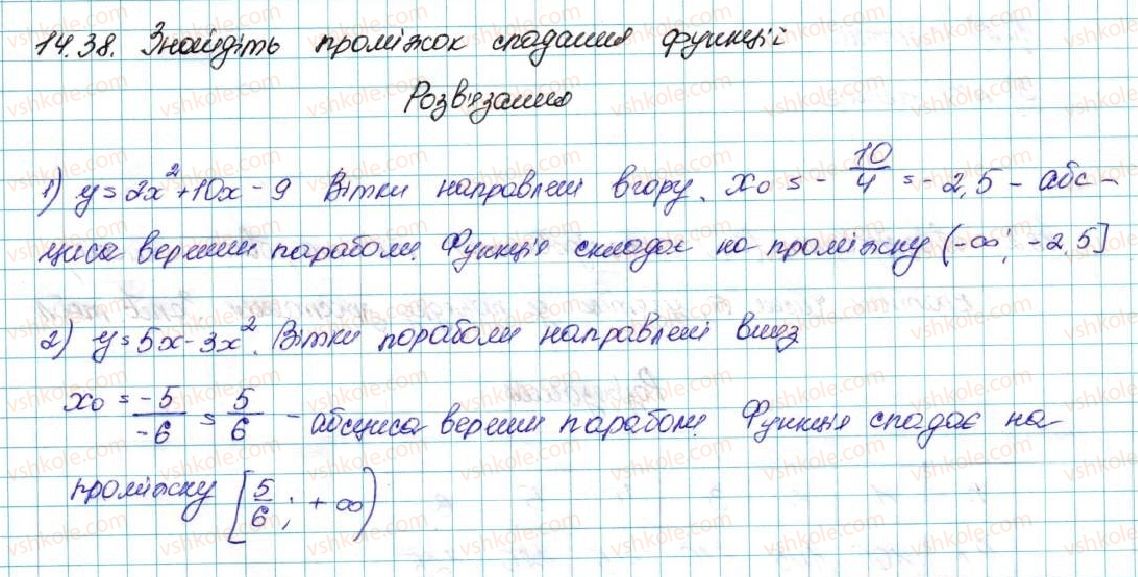 14.38. Знайдіть проміжок спадання функції
Розв'язання
1) y = 2x² + 10x - 9 Вітки направлені вгору. x₀ = - 10/4 = - 2,5 - абс-
циса вершини параболи. Функція складає на проміжку (-∞; -2,5]
2) y = 5x - 3x². Вітки пораболи направлені вниз
x₀ = -5/-6 = 5/6 - абсциса вершини параболи. Функція спадає на
проміжку [5/6; +∞)